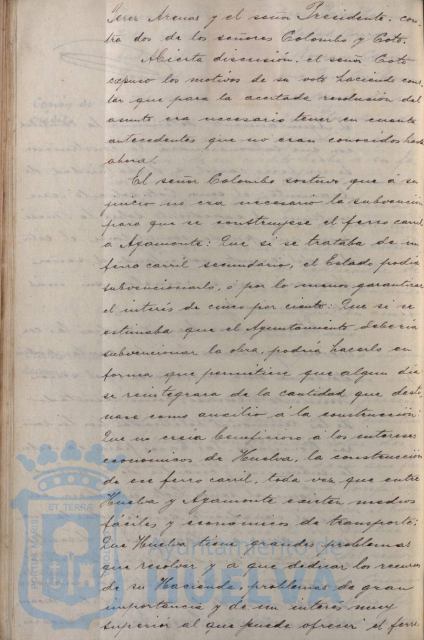 Perez Arenas y el señor Presidente, con-
tra dos de los señores Colombo y Coto.
Abierta discusión, el señor Coto
expuso los motivos de su voto haciendo cons-
tar que para la acertada resolución del
asunto era necesario tener en cuenta
antecedentes que no eran conocidos hasta
ahora.
El señor Colombo sostuvo que á su
juicio no era necesario la subvención
para que se construyese el ferro carril
á Ayamonte: Que si se trataba de un
ferro carril secundario, el Estado podía
subvencionarlo, ó por lo menos garantizar
el interés de cinco por ciento: Que si se
estimaba que el Ayuntamiento debería
subvencionar la obra, podría hacerlo en
forma que permitiese que algun dia
se reintegrara de la cantidad que desti-
nase como auxilio á la construcción:
Que no creia beneficioso á los intereses
económicos de Huelva, la construcción
de ese ferro carril, toda vez que entre
Huelva y Ayamonte existen medios
fáciles y económicos de transporte:
Que Huelva tiene grandes problemas
que resolver y á que dedicar los recursos
de su Hacienda, problemas de gran
importancia y de un interés muy
superior al que puede ofrecer el ferro
ET TERRA
Ayuntamiento de
HUELVA